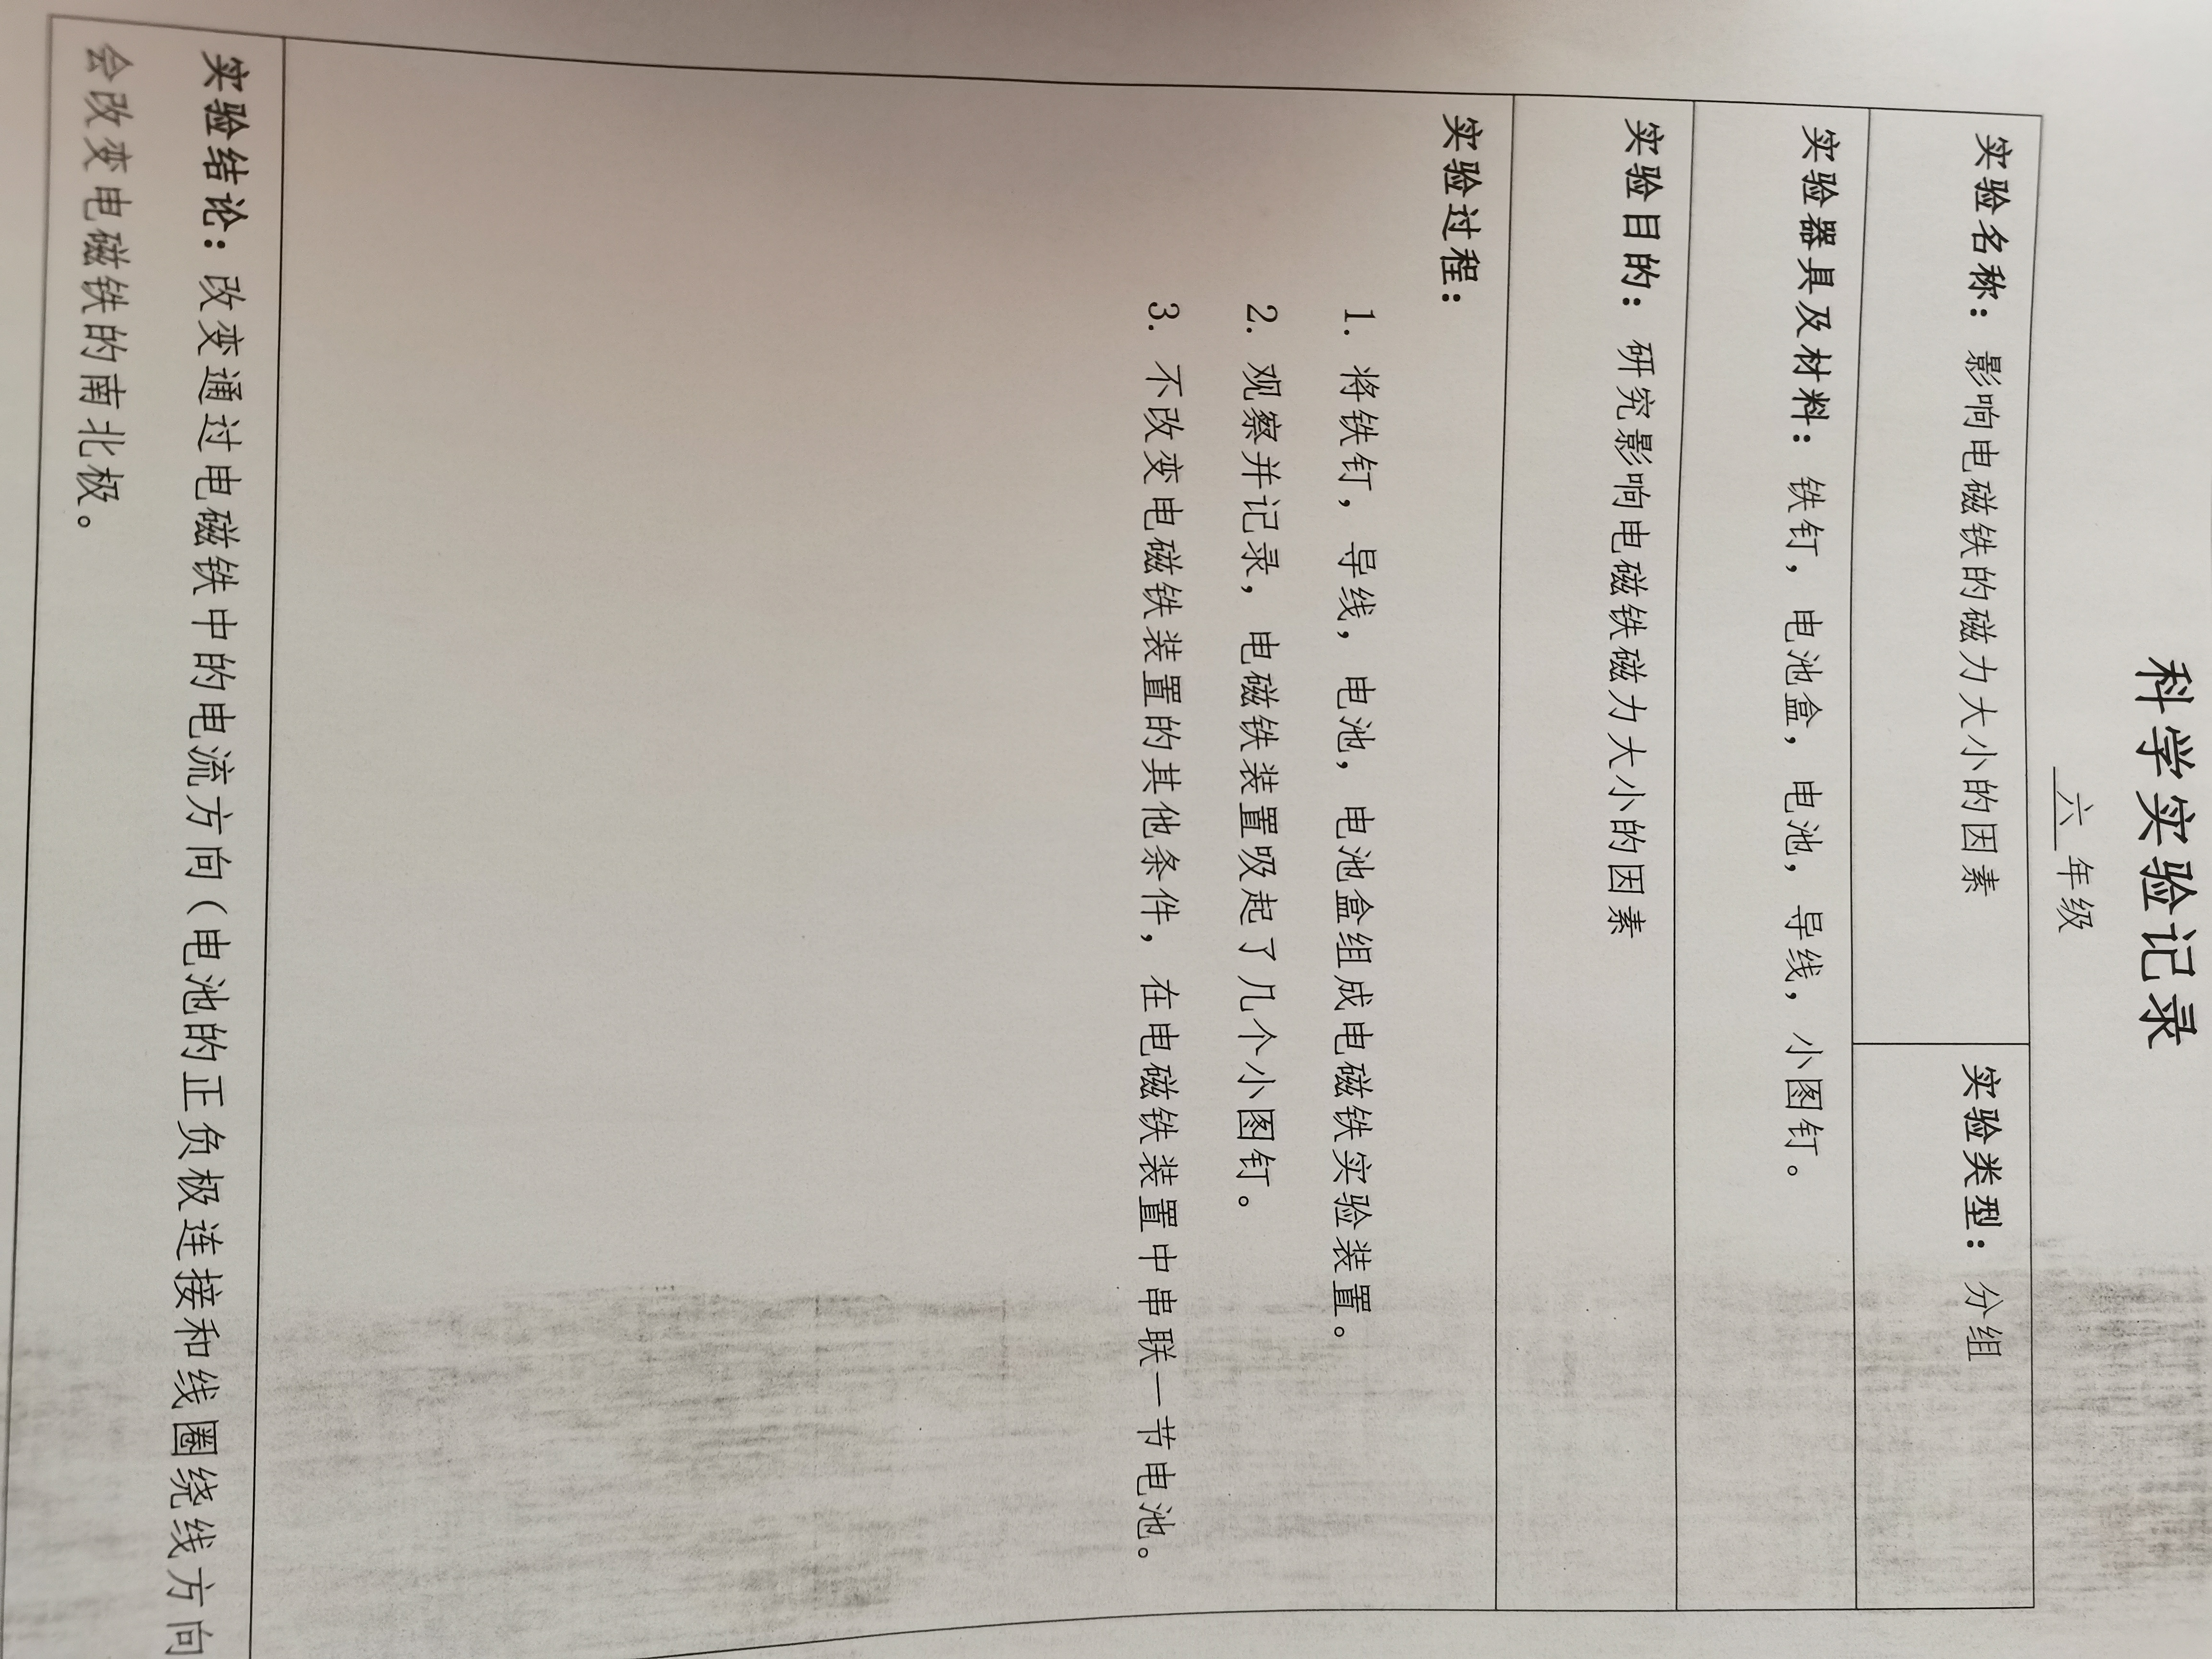 科学实验记录
六 年级
实验名称：影响电磁铁的磁力大小的因素
实验类型：分组
实验器具及材料：铁钉，电池盒，电池，导线，小图钉。
实验目的：研究影响电磁铁磁力大小的因素
实验过程：
1. 将铁钉，导线，电池，电池盒组成电磁铁实验装置。
2. 观察并记录，电磁铁装置吸起了几个小图钉。
3. 不改变电磁铁装置的其他条件，在电磁铁装置中串联一节电池。
实验结论：改变通过电磁铁中的电流方向（电池的正负极连接和线圈绕线方向
会改变电磁铁的南北极。